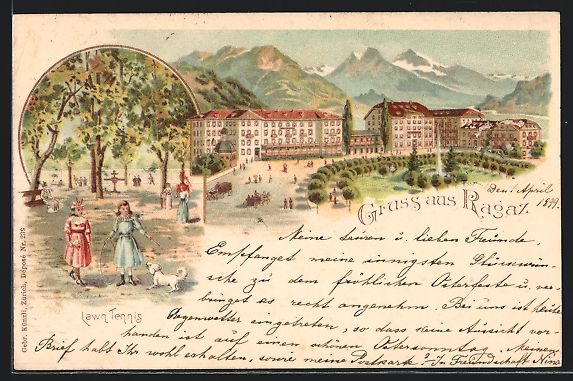 Gruss aus Ragaz
Den 1. April
1899.
Meine teuren u. lieben Freunde,
Empfanget meine innigsten Glückwün-
sche zu dem fröhlichen Osterfeste u. ver-
bringet es recht angenehm. Bei uns ist heute
Regenwetter eingetreten, so dass keine Aussicht vor-
handen ist auf einen schönen Ostersonntag. Meinen
Brief habt Ihr wohl erhalten, sowie meine Postkart? In Freundschaft Nina
Lawn Tennis
Gebr. Künzli, Zürich, Déposé Nr. 239